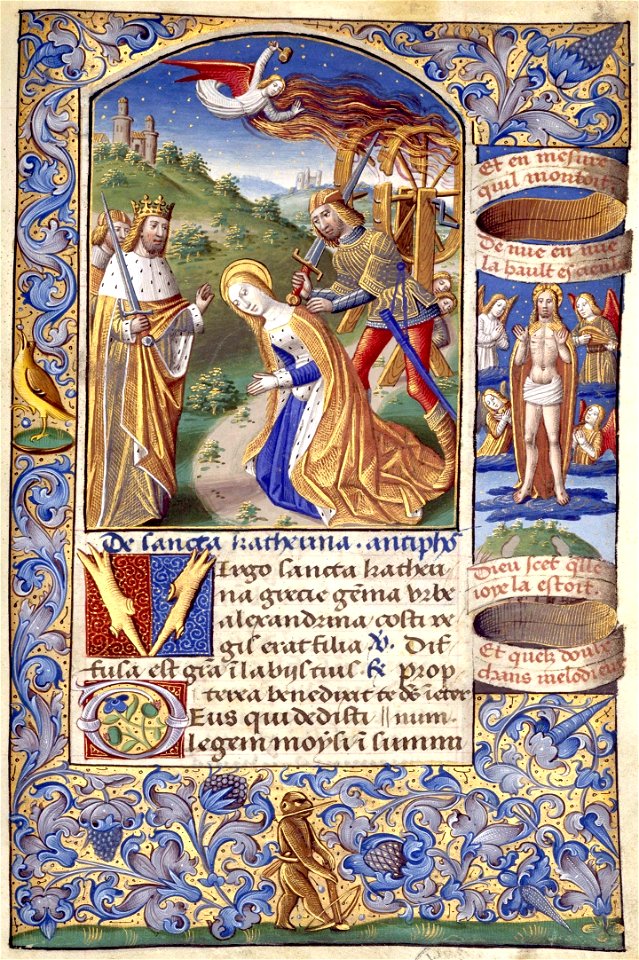 De sancta katherina . antiphõ
Virgo sancta katheri
na grecie gẽma vrbe
alexandrina costi re
gis erat filia ℣. Dif
fusa est grã ĩ labijs tuis ℟ prop
terea benedixit te dẽ ĩ eter
Deus qui dedisti // num.
legem moysi ĩ summi
Et en mesure
quil montoit.
De nue en nue
la hault es cieulx
Dieu scet qlle
ioye la estoit.
Et quelz doulx
chans melodieux